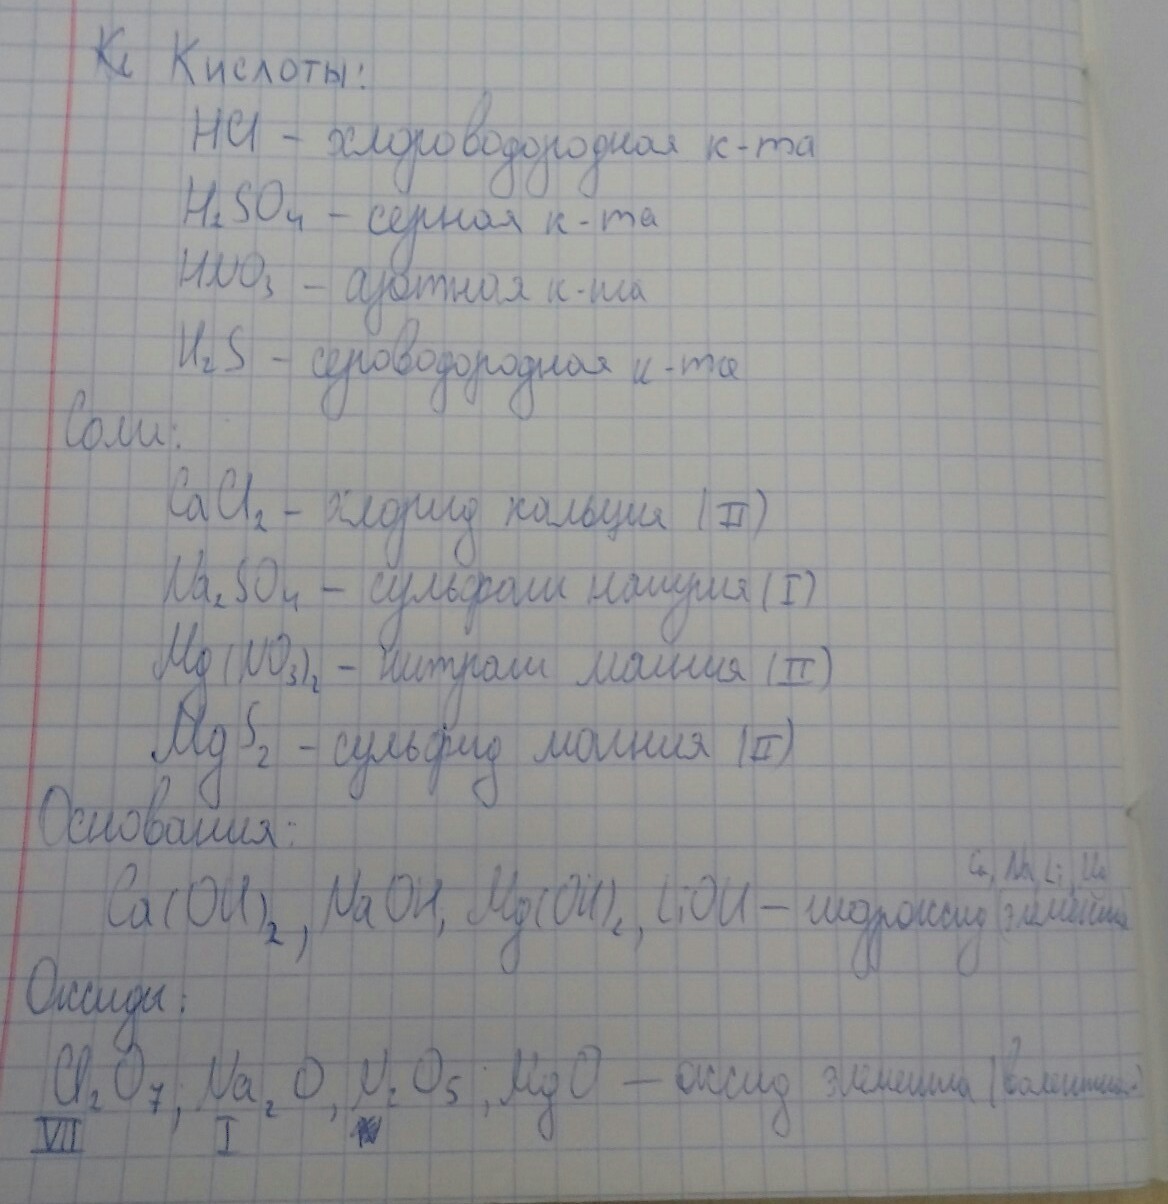 Кі Кислоты:
HCl – хлороводородная к-та
H₂SO₄ – серная к-та
HNO₃ – азотная к-та
H₂S – сероводородная к-та
Соли:
CaCl₂ – хлорид кальция (II)
Na₂SO₄ – сульфат натрия (I)
Mg(NO₃)₂ – нитрат магния (II)
MgS₂ – сульфид магния (II)
Основания:
Ca, Na, Li,
Ca(OH)₂, NaOH, Mg(OH)₂, LiOH – гидроксид элемента
Оксиды:
Cl₂O₇; Na₂O, N₂O₅; MgO – оксид элемента
VII I